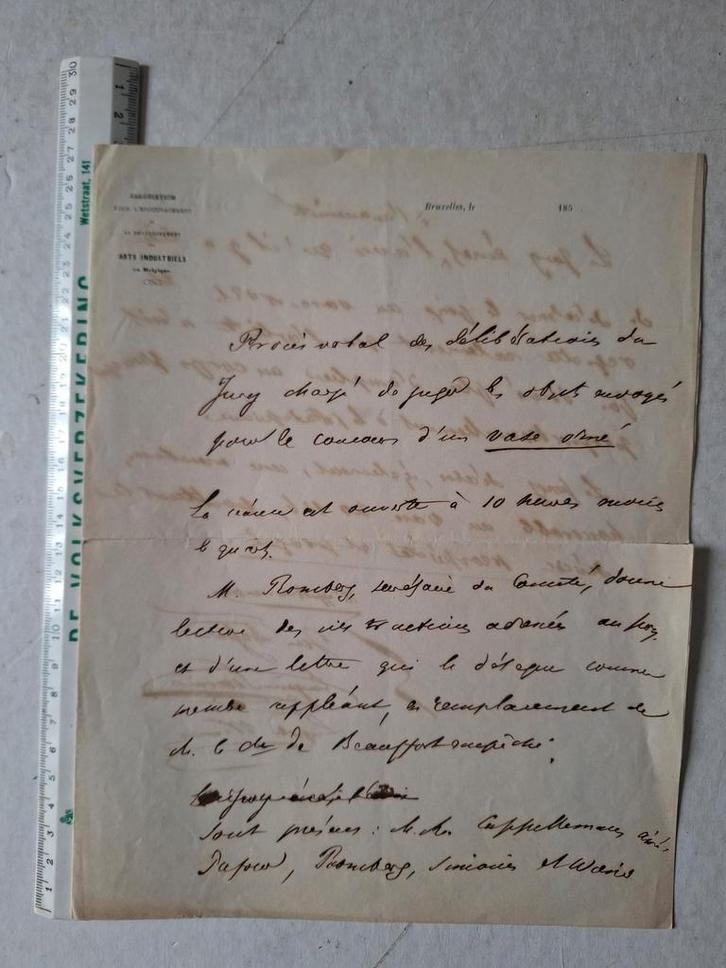 ASSOCIATION
POUR L'ENCOURAGEMENT
ET
LE DÉVELOPPEMENT
DES
ARTS INDUSTRIELS
en Belgique
Bruxelles, le 185
Procès verbal des délibérations du
Jury chargé de juger les objets envoyés
pour le concours d'un vase orné
La séance est ouverte à 10 heures moins
le quart.
M. Romberg, secrétaire du Comité, donne
lecture des instructions adressées au jury
et d'une lettre qui le délègue comme
membre suppléant, en remplacement de
M. le de Beauffort empêché.
Sont présens : M.M. Cappellemans aîné,
Romberg, Simonis et
30 29 28 27 26 25 24 23 22 21 20 19 18 17 16 15 14 13 12 11 10 9 8 7 6 5 4 3 2 1
DE VOLKSVERZEKERING
Wetstraat, 141
1 2